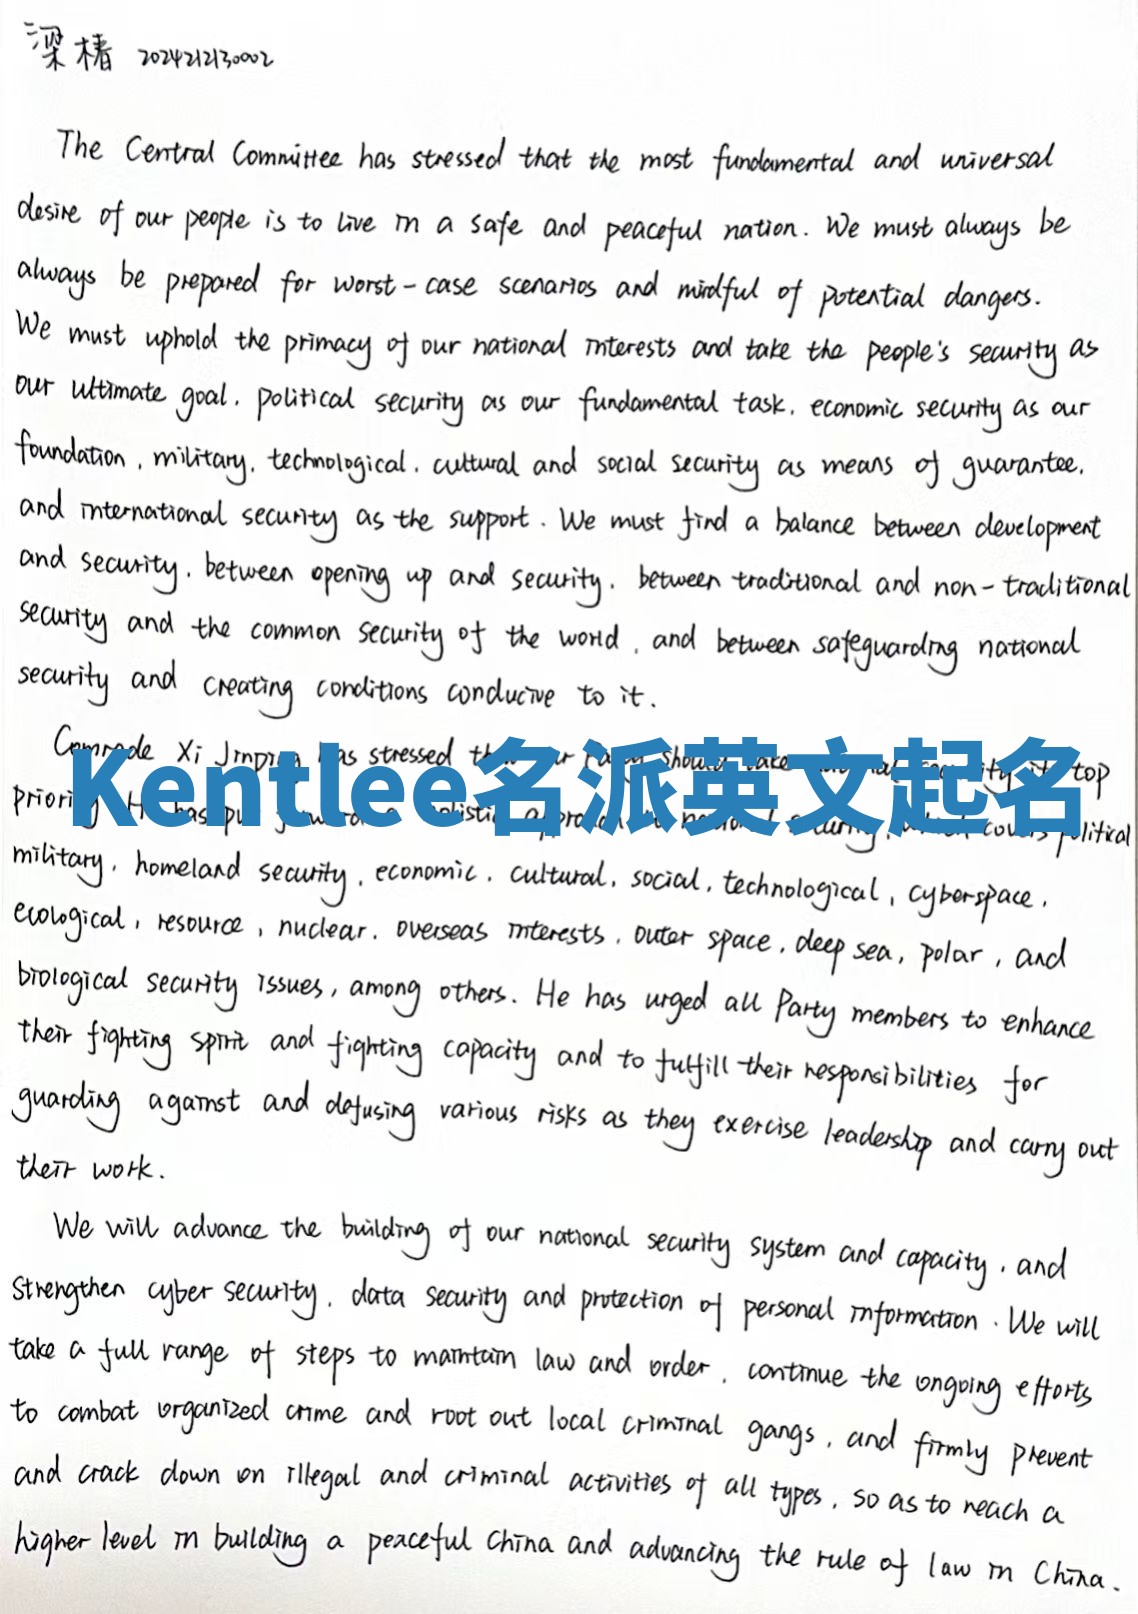 梁椿 2024212130002
The Central Committee has stressed that the most fundamental and universal
desire of our people is to live in a safe and peaceful nation. We must always be
always be prepared for worst-case scenarios and mindful of potential dangers.
We must uphold the primacy of our national interests and take the people's security as
our ultimate goal, political security as our fundamental task, economic security as our
foundation, military, technological, cultural and social security as means of guarantee,
and international security as the support. We must find a balance between development
and security, between opening up and security, between traditional and non-traditional
security and the common security of the world, and between safeguarding national
security and creating conditions conducive to it.
Comrade Xi Jinping has stressed should take top
Kentlee名派英文起名
priority. He has approach national security, which covers political
military, homeland security, economic, cultural, social, technological, cyberspace,
ecological, resource, nuclear, overseas interests, outer space, deep sea, polar, and
biological security issues, among others. He has urged all Party members to enhance
their fighting spirit and fighting capacity and to fulfill their responsibilities for
guarding against and defusing various risks as they exercise leadership and carry out
their work.
We will advance the building of our national security system and capacity, and
strengthen cyber security, data security and protection of personal information. We will
take a full range of steps to maintain law and order, continue the ongoing efforts
to combat organized crime and root out local criminal gangs, and firmly prevent
and crack down on illegal and criminal activities of all types, so as to reach a
higher level in building a peaceful China and advancing the rule of law in China.